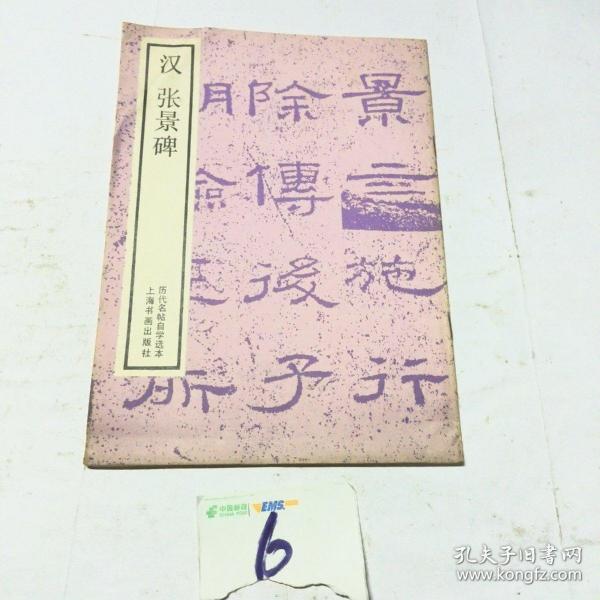 汉 张景碑
历代名帖自学选本
上海书画出版社
景三施行
除傳後子
所
中国邮政
CHINA POST
EMS
6
孔夫子旧书网
www.kongfz.com